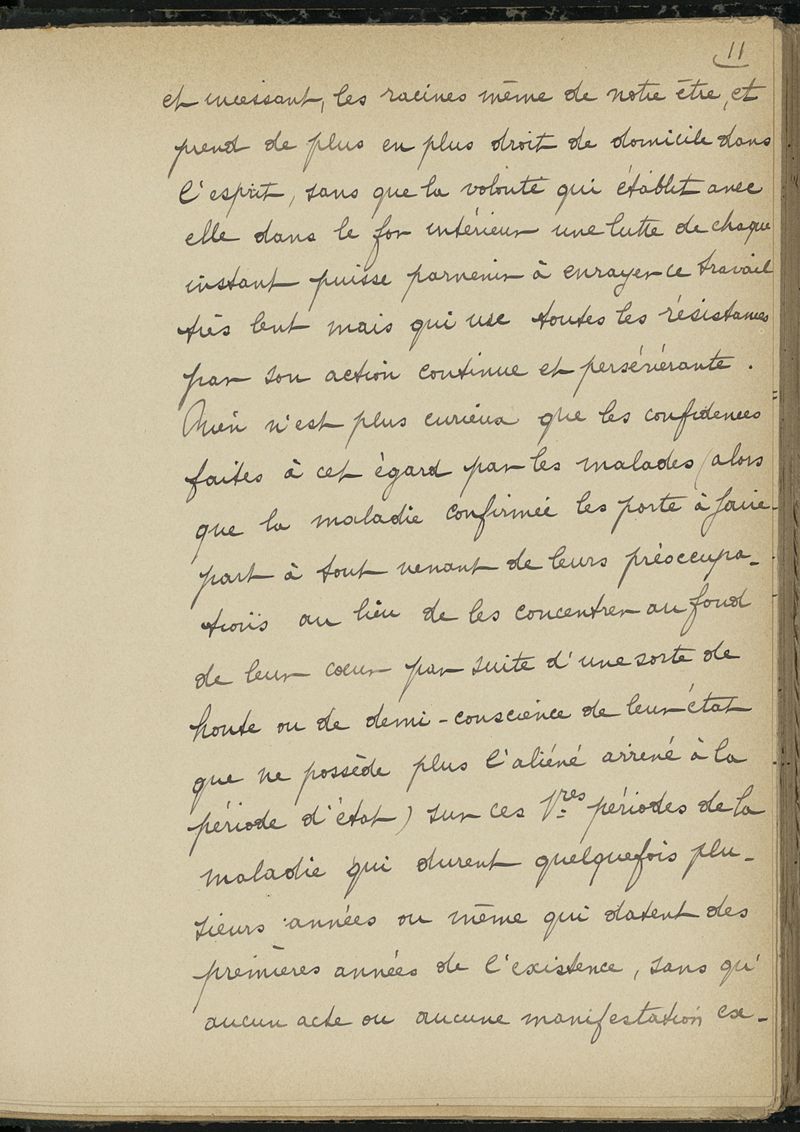 11
et incessant, les racines même de notre être, et
prend de plus en plus droit de domicile dans
l'esprit, sans que la volonté qui établit avec
elle dans le for intérieur une lutte de chaque
instant puisse parvenir à enrayer ce travail
très lent mais qui use toutes les résistances
par son action continue et persévérante.
Rien n'est plus curieux que les confidences
faites à cet égard par les malades (alors
que la maladie confirmée les porte à faire
part à tout venant de leurs préoccupa-
tions au lieu de les concentrer au fond
de leur coeur par suite d'une sorte de
honte ou de demi-conscience de leur état
que ne possède plus l'aliéné arrivé à la
période d'état) sur ces 1res périodes de la
maladie qui durent quelquefois plu-
sieurs années ou même qui datent des
premières années de l'existence, sans qu'
aucun acte ou aucune manifestation ex-